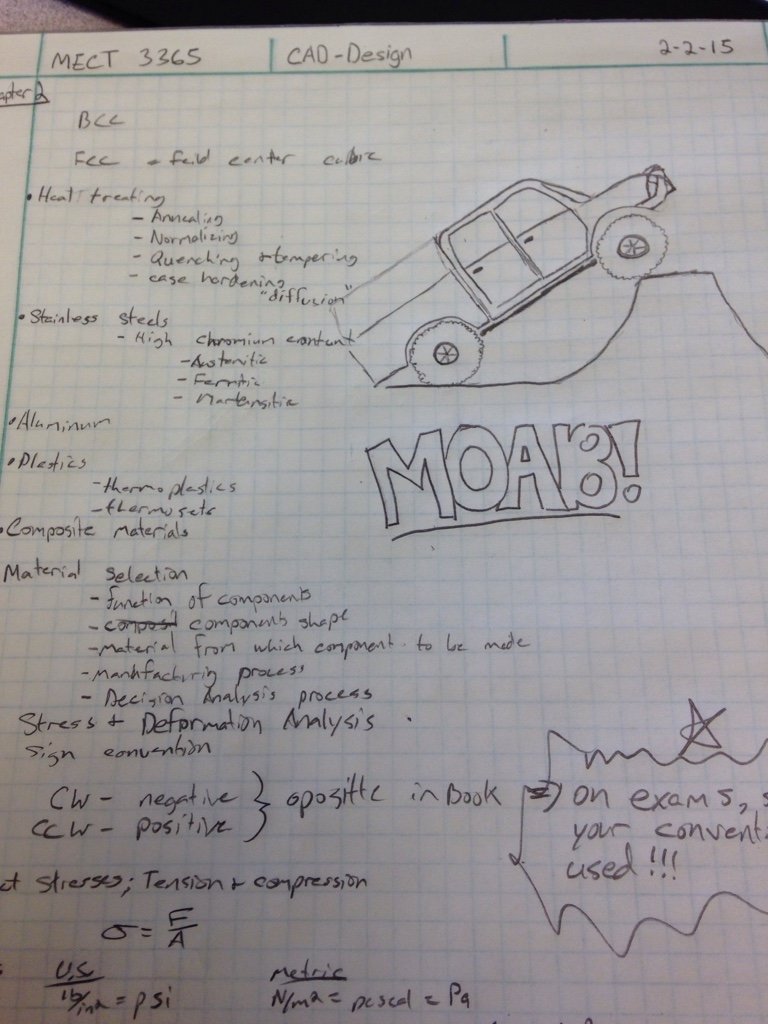 MECT 3365
CAD-Design
2-2-15
apter 2
BCC
FCC
center cubic
• Heat treating
- Annealing
- Normalizing
- Quenching + tempering
- case hardening
"diffusion"
• Stainless steels
- High chromium content
- Austenitic
- Ferritic
- Martensitic
MOAB!
• Aluminum
• Plastics
- thermoplastics
- thermosets
• Composite materials
Material selection
- function of components
- components shape
- material from which component to be made
- Manhfacturing process
- Decision Analysis process
Stress + Deformation Analysis
sign convention
CW - negative
CCW - positive
opositte in Book
on exams, s
your conventi
used!!!
ct stresses; Tension + compression
σ = F/A
U.S
lb/in2 = psi
metric
N/m2 = pascal = Pa